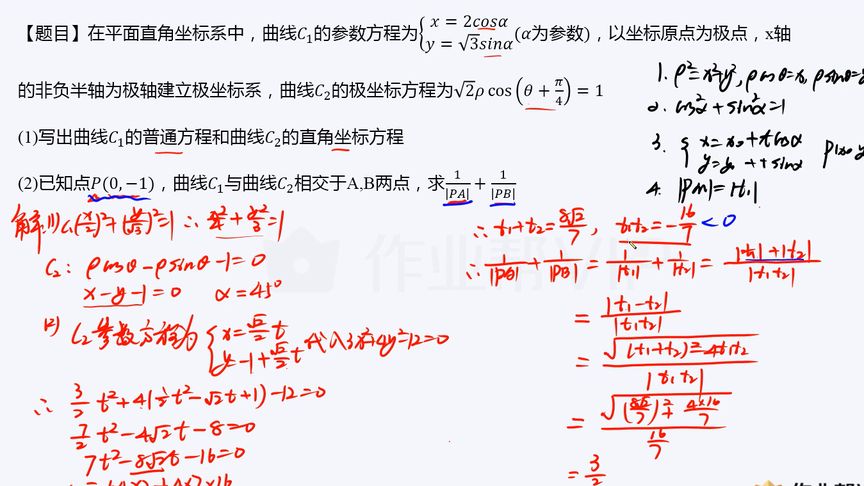 【题目】在平面直角坐标系中，曲线C₁的参数方程为{x=2cosα y=√3sinα(α为参数)，以坐标原点为极点，x轴
的非负半轴为极轴建立极坐标系，曲线C₂的极坐标方程为√2ρcos(θ+π/4)=1
(1)写出曲线C₁的普通方程和曲线C₂的直角坐标方程
(2)已知点P(0,−1)，曲线C₁与曲线C₂相交于A,B两点，求1/|PA|+1/|PB|
1. ρ²=x²+y², ρcosθ=x, ρsinθ=
2. cos²α+sin²α=1
3. {x=x₀+tcosα y=y₀+tsinα
4. |PM|=|t₁|
解:(1) C₁(x/2)²+(y/√3)²=1 ∴ x²/4+y²/3=1
C₂: ρcosθ−ρsinθ−1=0
x−y−1=0 α=45°
(2) C₂参数方程为{x=√2/2t y=−1+√2/2t 代入3x²+4y²−12=0
∴ 3/2t²+4(1/2t²−√2t+1)−12=0
7/2t²−4√2t−8=0
7t²−8√2t−16=0
∴ t₁+t₂=8√2/7, t₁t₂=−16/7<0
∴ 1/|PA|+1/|PB|=1/|t₁|+1/|t₂|=|t₁|+|t₂|/|t₁t₂|
=|t₁−t₂|/|t₁t₂|
=√(t₁+t₂)²−4t₁t₂/|t₁t₂|
=√(8√2/7)²+4×16/7/16/7
=3/2
作业帮VIP